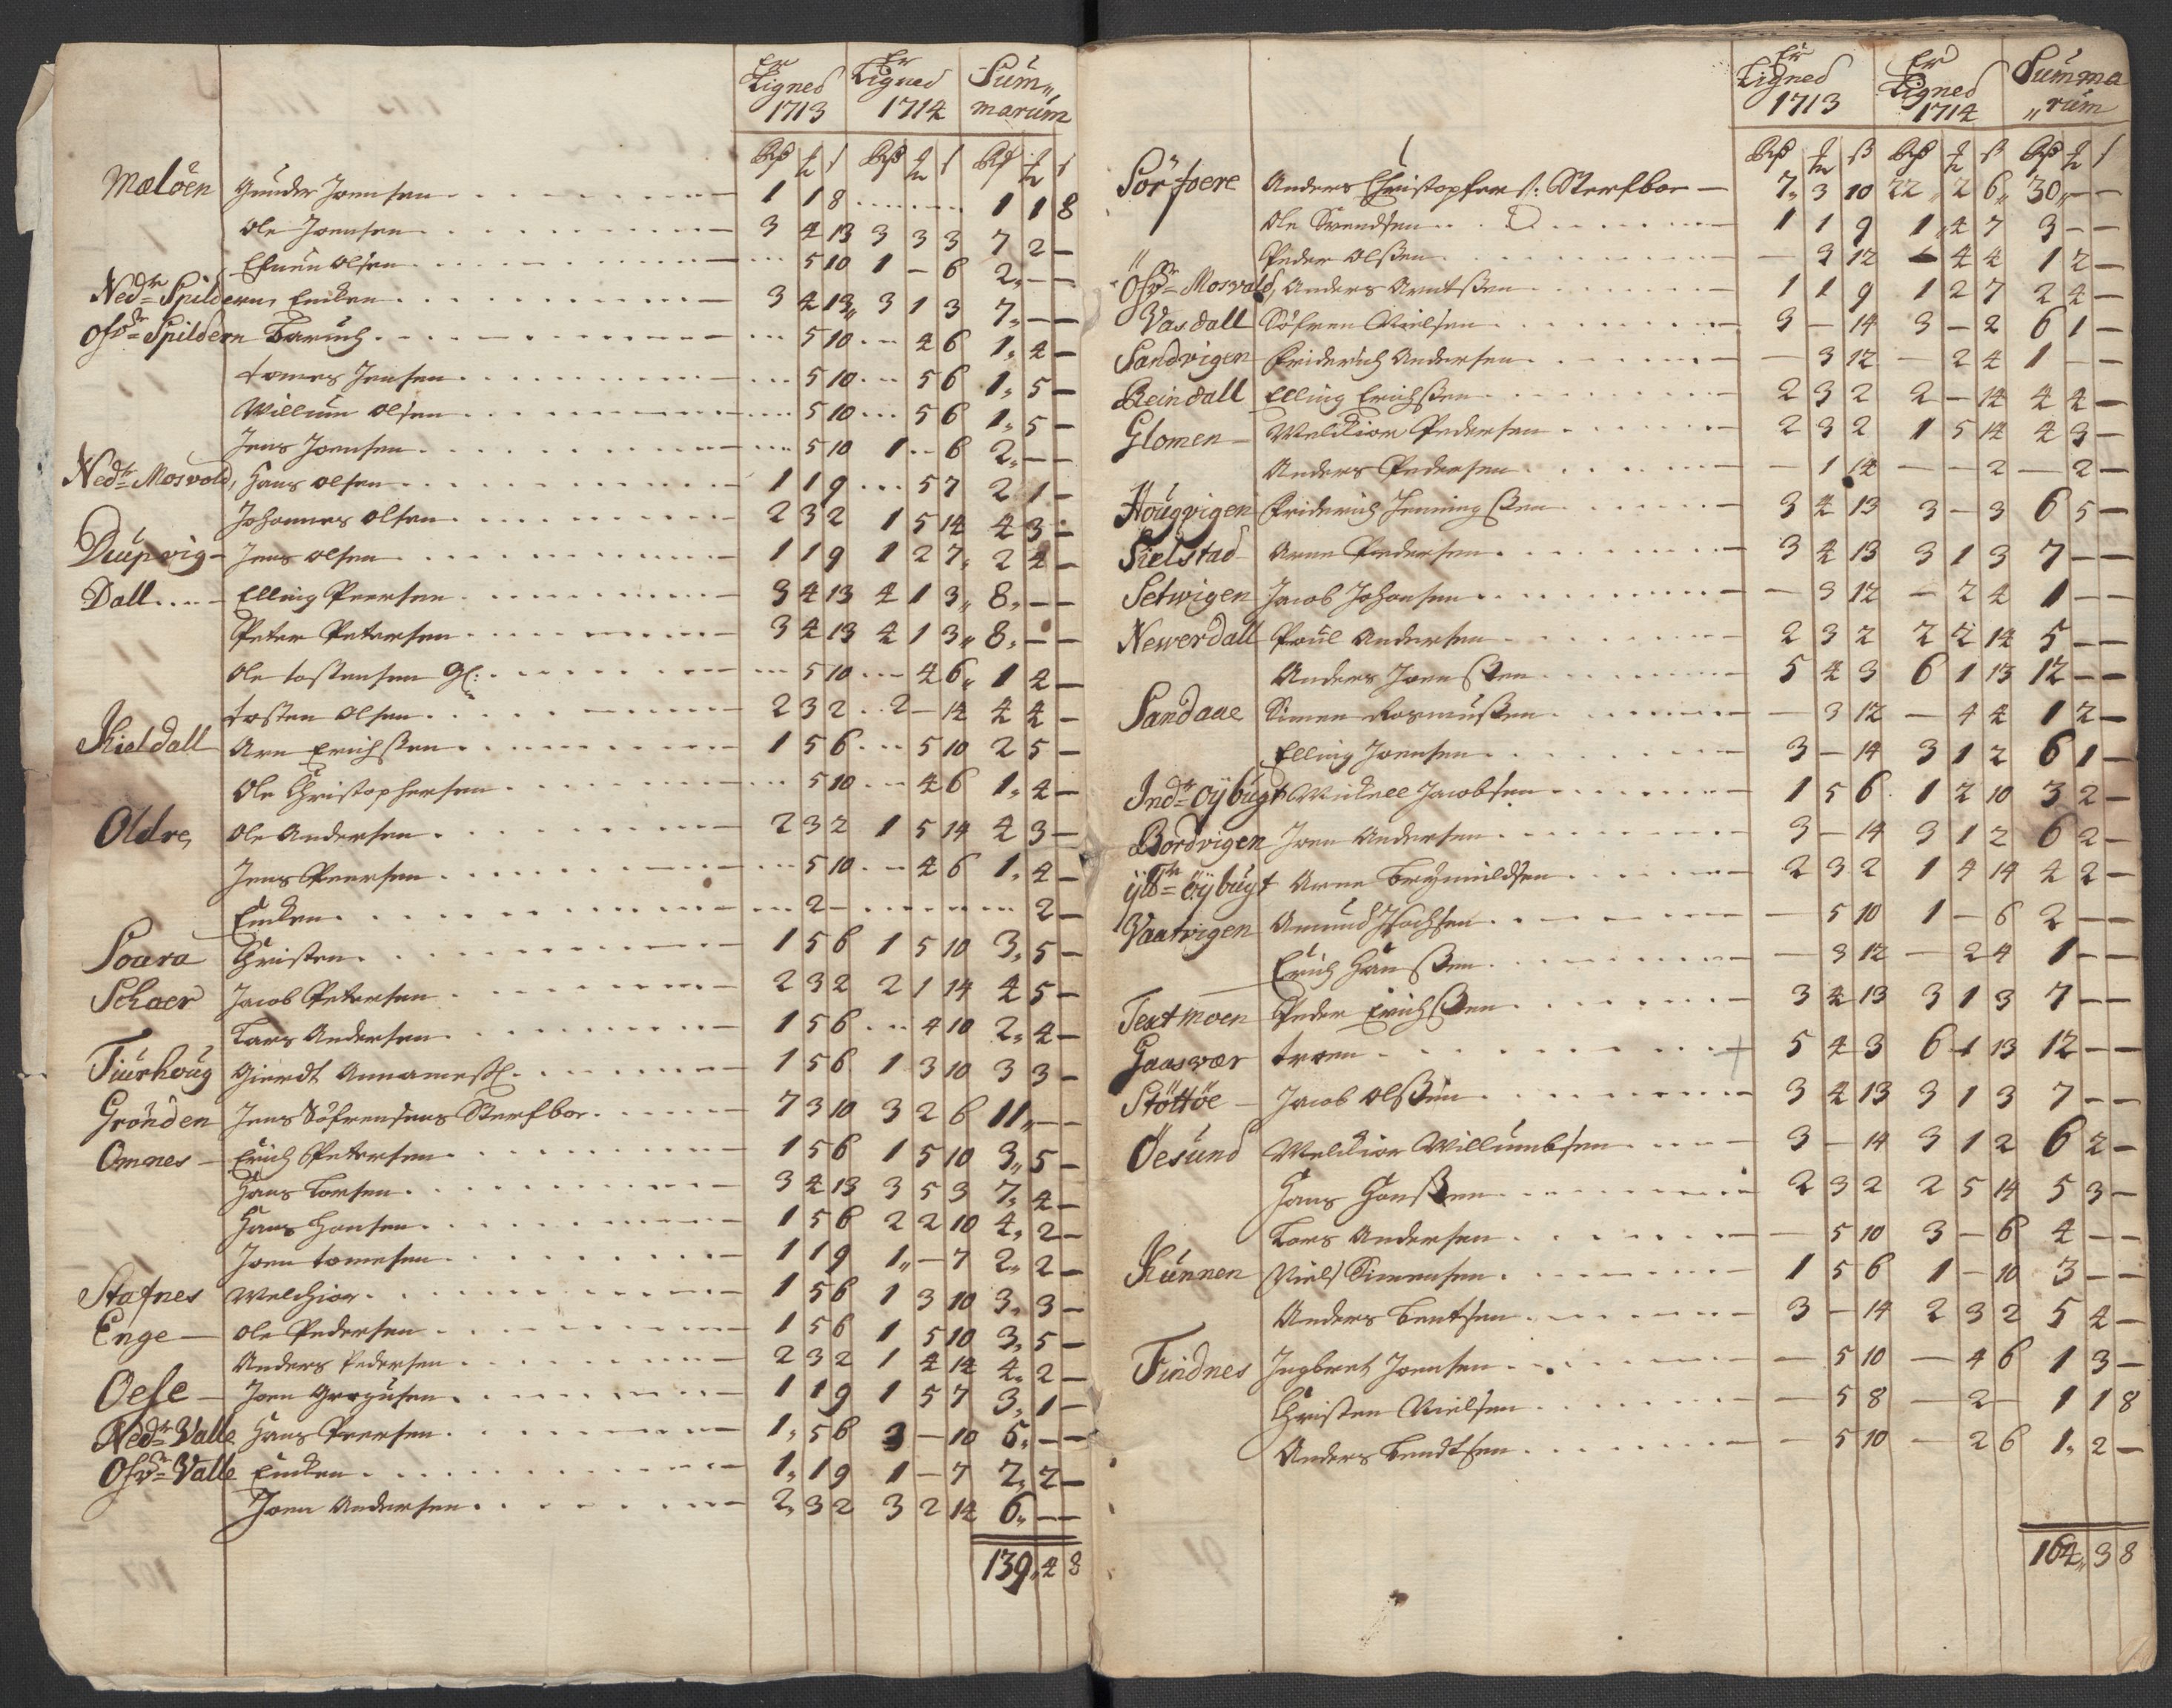 Er Ligned 1713 Er Ligned 1714 Sum„ marum
Mælöen Gunder Joensen 1 1 8 1 1 8
Ole Joensen 3 4 13 3 3 3 7 2 —
Ole Olsen 5 10 1 — 6 2 — —
Nedr Spildern, Encken 3 4 13 3 1 3 7 — —
Ofvr Spildern Baruch 5 10 4 6 1 4 —
Tomes Jensen 5 10 5 6 1 5 —
Willum Olsen 5 10 5 6 1 5 —
Jens Joensen 5 10 1 6 2 — —
Nedr Mosvold, Hans Olsen 1 1 9 5 7 2 1 —
Johannes Olsen 2 3 2 1 5 14 4 3 —
Diupvig Jens Olsen 1 1 9 1 2 7 2 4 —
Dall Elling Peersen 3 4 13 4 1 3 8 — —
Peter Petersen 3 4 13 4 1 3 8 — —
Ole Tostensen Gl: 5 10 4 6 1 4 —
Tosten Olsen 2 3 2 2 — 14 4 4 —
Kieldall Arn Erichssen 1 5 6 5 10 2 5 —
Ole Christophersen 5 10 4 6 1 4 —
Oldre, Ole Andersen 2 3 2 1 5 14 4 3 —
Jens Peersen 5 10 4 6 1 4 —
Encken 2 — 2 —
Soura Christen 1 5 6 1 5 10 3 5 —
Schaer Jacob Petersen 2 3 2 2 1 14 4 5 —
Lars Andersen 1 5 6 4 10 2 4 —
Tiurhoug Gierdt 1 5 6 1 3 10 3 3 —
Grönden Jens Söfrensens Sterfboe 7 3 10 3 2 6 11 — —
Omnes Erich Petersen 1 5 6 1 5 10 3 5 —
Hans Larsen 3 4 13 3 5 3 7 4 —
Hans Hansen 1 5 6 2 2 10 4 2 —
Joen Tomesen 1 1 9 1 — 7 2 2 —
Stafnes Melchior 1 5 6 1 3 10 3 3 —
Enge Ole Pedersen 1 5 6 1 5 10 3 5 —
Anders Pedersen 2 3 2 1 4 14 4 2 —
Oese Joen Gregusen 1 1 9 1 5 7 3 1 —
Nedr Valle Hans Peersen 1 5 6 3 — 10 5 — —
Ofvr Valle Encken 1 1 9 1 — 7 2 2 —
Joen Andersen 2 3 2 3 2 14 6 — —
139 4 8
Er Ligned 1713 Er Ligned 1714 Summa „rum
Sörfoere Anders Christopfers: Sterfboe 7 3 10 22 2 6 30 — —
Ole Svendsen 1 1 9 1 4 7 3 — —
Peder Olssen — 3 12 — 4 4 1 2 —
Ofvr Mosvald, Anders Arntssen 1 1 9 1 2 7 2 4 —
Vasdall Söfren Nielsen 3 — 14 3 — 2 6 1 —
Sandvigen Friderich Andersen — 3 12 — 2 4 1 — —
Reindall Elling Erichssen 2 3 2 2 — 14 4 4 —
Glomen Melchior Pedersen 2 3 2 1 5 14 4 3 —
Anders Pedersen — 1 14 — — 2 — 2 —
Hougvigen Friderich Henningssen 3 4 13 3 — 3 6 5 —
Sielstad Arne Pedersen 3 4 13 3 1 3 7 — —
Setvigen Jacob Johansen — 3 12 — 2 4 1 — —
Newerdall Poul Andersen 2 3 2 2 2 14 5 — —
Anders Joenssen 5 4 3 6 1 13 12 — —
Sandaae Simen Rasmussen — 3 12 — 4 4 1 2 —
Elling Joensen 3 — 14 3 1 2 6 1 —
Indr öÿbugt Mickell Jacobsen 1 5 6 1 2 10 3 2 —
Bordvigen Joen Andersen 3 — 14 3 1 2 6 2 —
ÿttr öÿbugt Arne Brÿnnildsen 2 3 2 1 4 14 4 2 —
Vaatvigen Amund — 5 10 1 — 6 2 — —
Erich Hanssen — 3 12 — 2 4 1 — —
Textmoen Peder Erichssen 3 4 13 3 1 3 7 — —
Gaasvær Troen 5 4 3 6 1 13 12 — —
Stöttöe Jacob Olssen 3 4 13 3 1 3 7 — —
Öesund Melchior Willumbsen 3 — 14 3 1 2 6 2 —
Hans Hanssen 2 3 2 2 5 14 5 3 —
Lars Andersen — 5 10 3 — 6 4 — —
Kunnen Niels Simensen 1 5 6 1 — 10 3 — —
Anders Bentsen 3 — 14 2 3 2 5 4 —
Findnes Ingebret Joensen — 5 10 — 4 6 1 3 —
Christen Nielsen — 5 8 — 2 — 1 1 8
Anders Bendtsen — 5 10 — 2 6 1 2 —
164 3 8